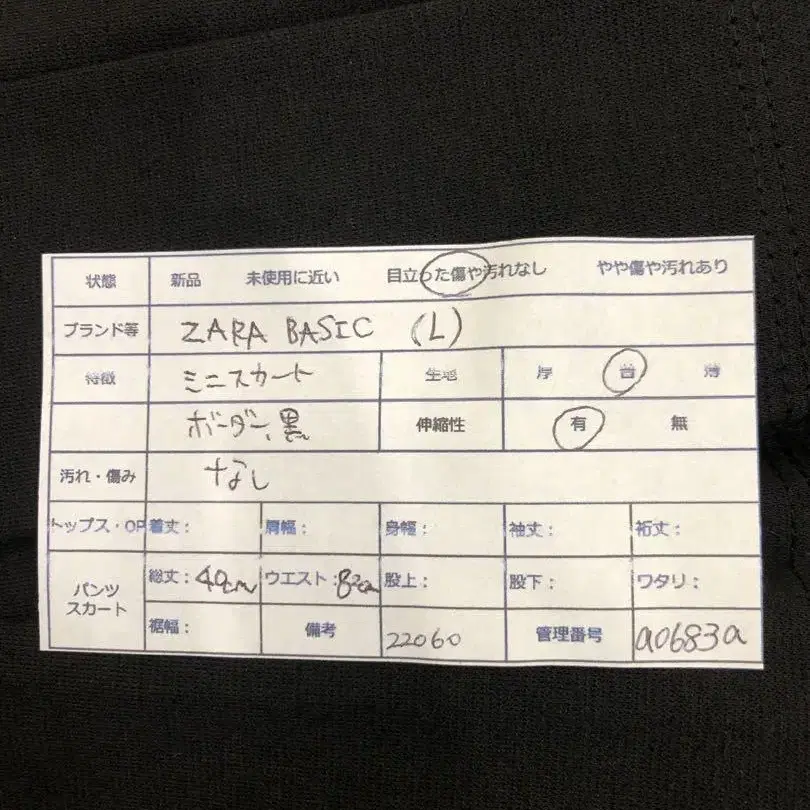 状態 新品 未使用に近い 目立った傷や汚れなし やや傷や汚れあり
ブランド等 ZARA BASIC (L)
特徴 ミニスカート 生地 厚 普 薄
ボーダー、黒 伸縮性 有 無
汚れ・傷み なし
トップス・OP 着丈: 肩幅: 身幅: 袖丈: 裄丈:
パンツ スカート 総丈:40cm ウエスト:82cm 股上: 股下: ワタリ:
裾幅: 備考 22060 管理番号 a0683a